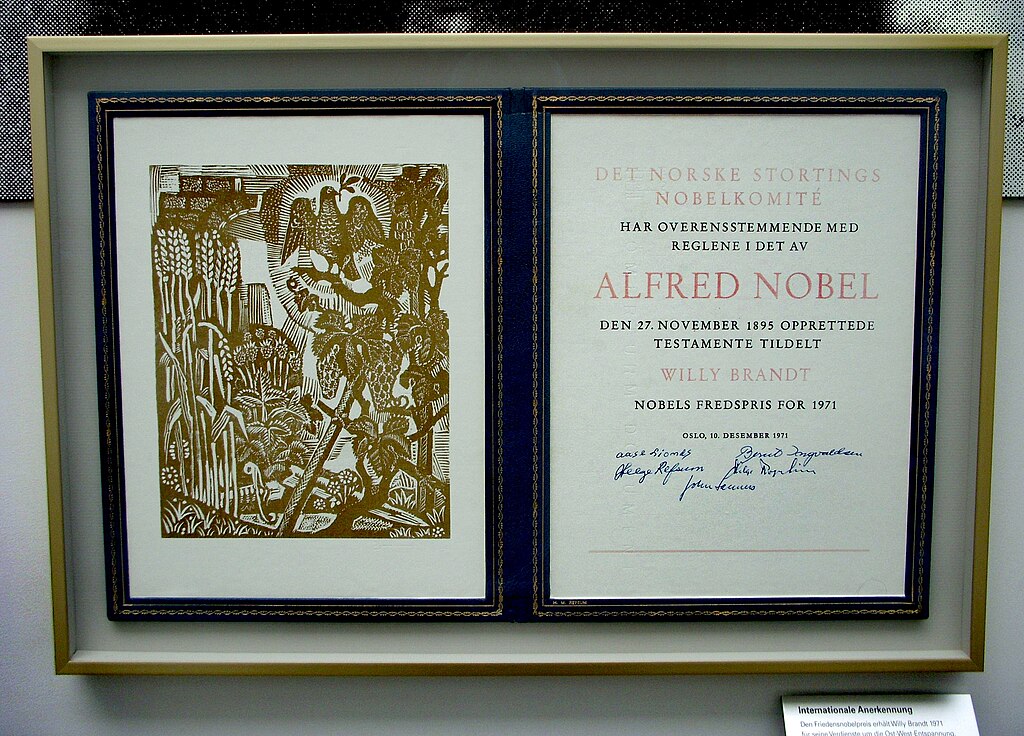 DET NORSKE STORTINGS
NOBELKOMITÉ
HAR OVERENSSTEMMENDE MED
REGLENE I DET AV
ALFRED NOBEL
DEN 27. NOVEMBER 1895 OPPRETTEDE
TESTAMENTE TILDELT
WILLY BRANDT
NOBELS FREDSPRIS FOR 1971
OSLO, 10. DESEMBER 1971
Aase Lionæs Bernt Ingvaldsen
Helge Refsum Helge Rognlien
John Sanness
H. M. REFSUM
Internationale Anerkennung
Den Friedensnobelpreis erhält Willy Brandt 1971
für seine Verdienste um die Ost-West-Entspannung.